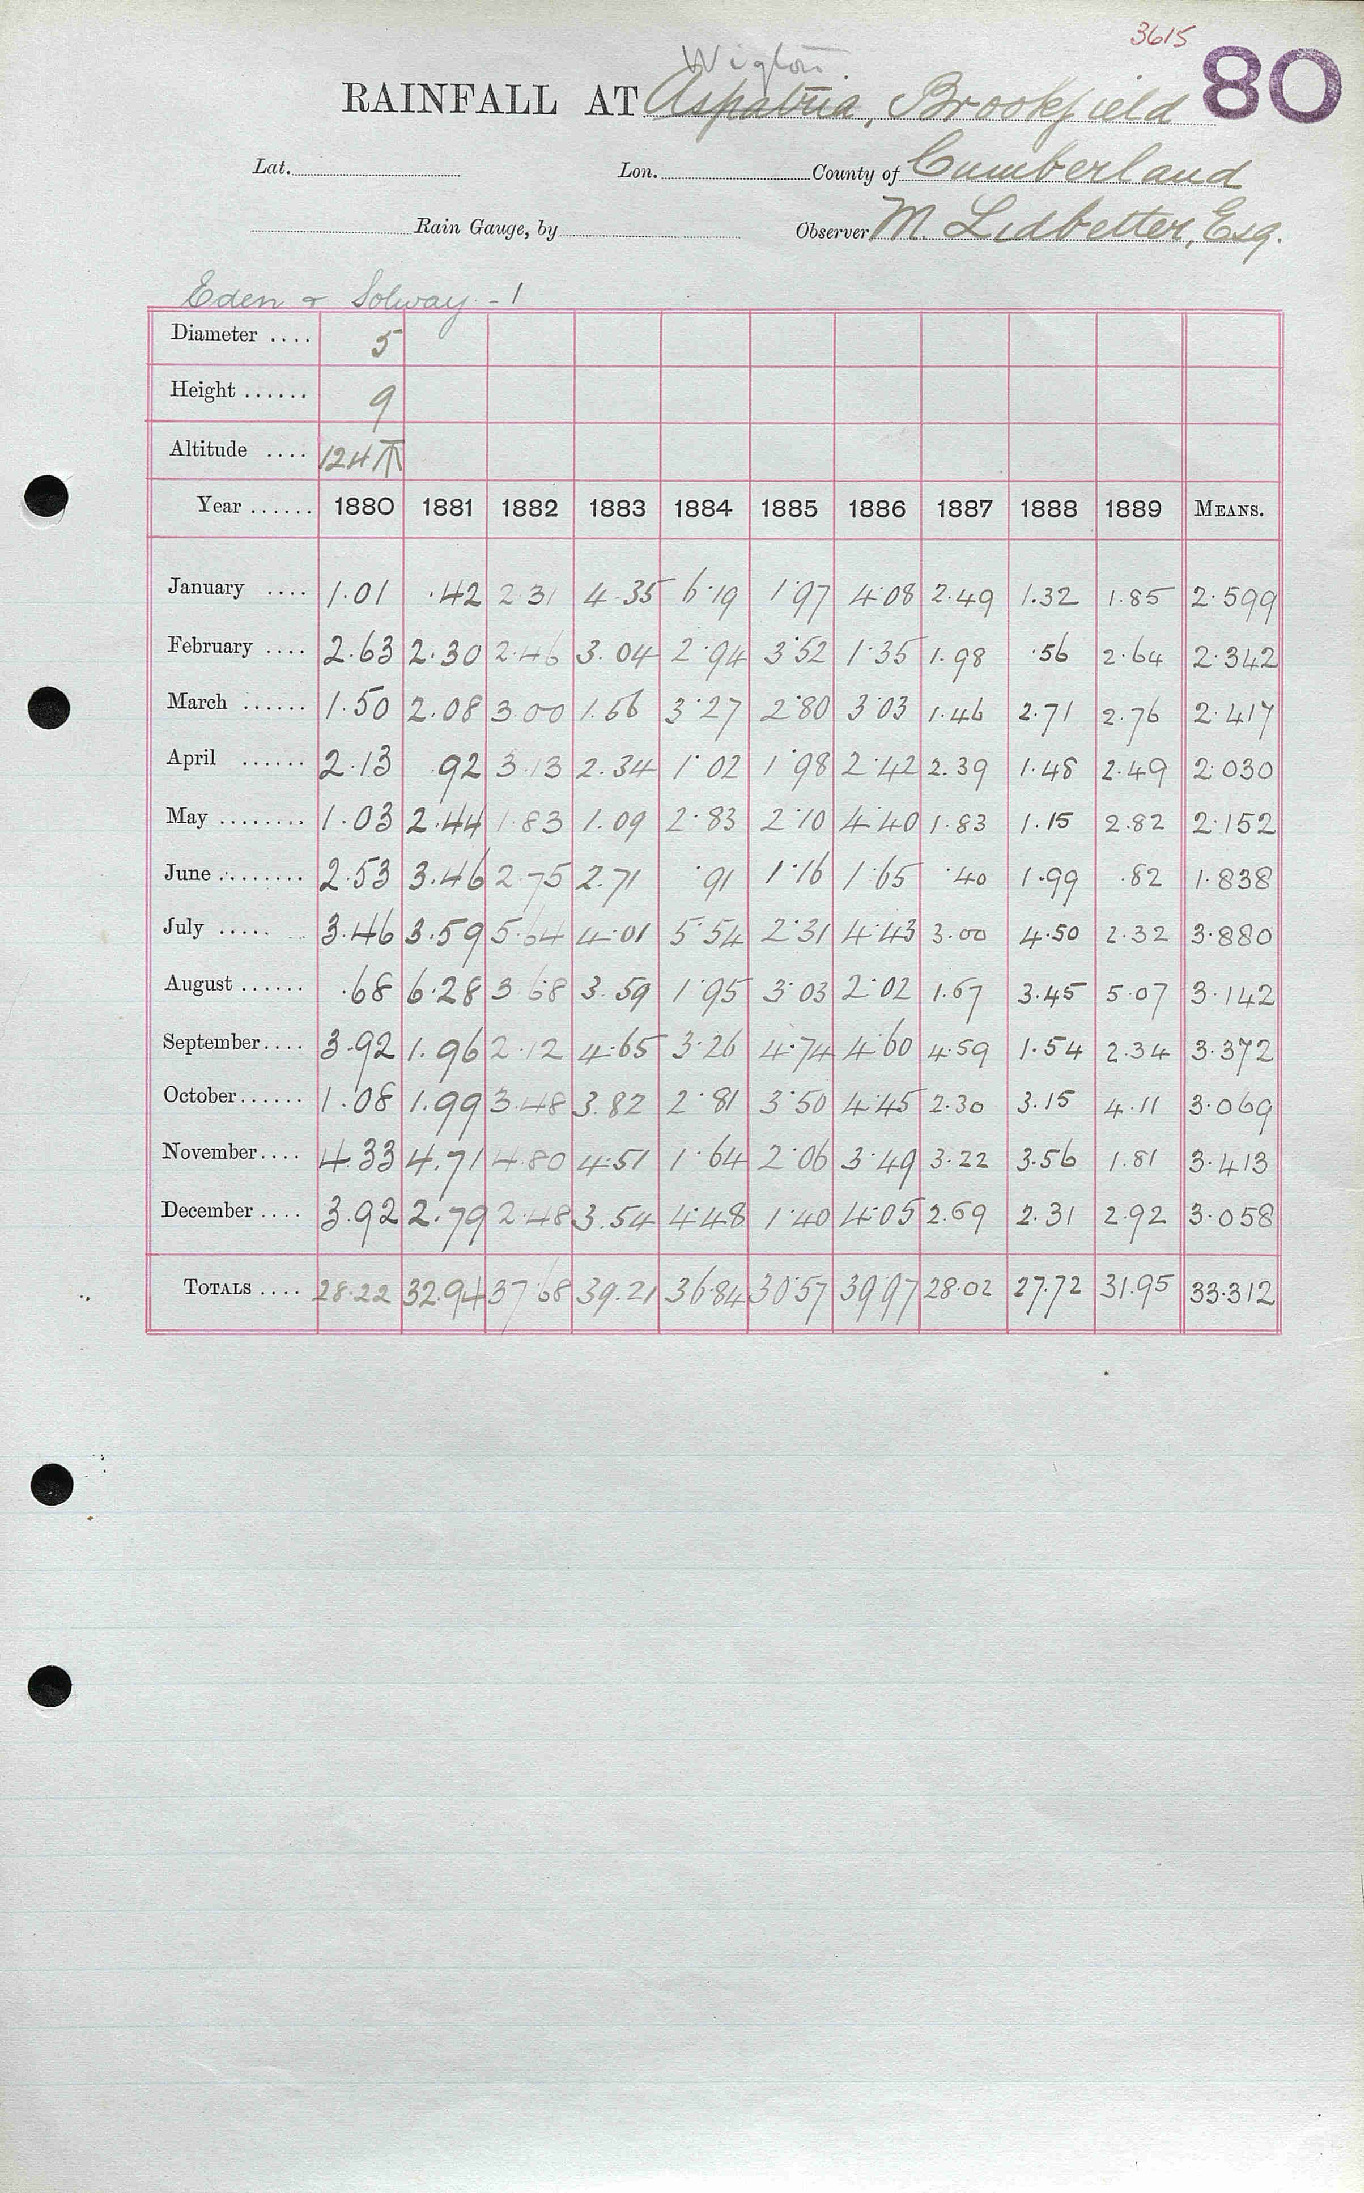 3615
80
Wigton
RAINFALL AT Aspatria, Brookfield
Lat. Lon. County of Cumberland
Rain Gauge, by Observer M. Lidbetter, Esq.
Eden & Solway - 1
Diameter .... 5
Height ...... 9
Altitude .... 124
Year ...... 1880 1881 1882 1883 1884 1885 1886 1887 1888 1889 MEANS.
January .... 1.01 .42 2.31 4.35 6.19 1.97 4.08 2.49 1.32 1.85 2.599
February .... 2.63 2.30 2.46 3.04 2.94 3.52 1.35 1.98 .56 2.64 2.342
March ...... 1.50 2.08 3.00 1.56 3.27 2.80 3.03 1.46 2.71 2.76 2.417
April ...... 2.13 .92 3.13 2.34 1.02 1.98 2.42 2.39 1.48 2.49 2.030
May ........ 1.03 2.44 1.83 1.09 2.83 2.10 4.40 1.83 1.15 2.82 2.152
June ........ 2.53 3.46 2.75 2.71 .91 1.16 1.65 .40 1.99 .82 1.838
July ..... 3.46 3.59 5.64 4.01 5.54 2.31 4.43 3.00 4.50 2.32 3.880
August ...... .68 6.28 3.68 3.59 1.95 3.03 2.02 1.67 3.45 5.07 3.142
September.... 3.92 1.96 2.12 4.65 3.26 4.74 4.60 4.59 1.54 2.34 3.372
October...... 1.08 1.99 3.48 3.82 2.81 3.50 4.45 2.30 3.15 4.11 3.069
November.... 4.33 4.71 4.80 4.51 1.64 2.06 3.49 3.22 3.56 1.81 3.413
December .... 3.92 2.79 2.48 3.54 4.48 1.40 4.05 2.69 2.31 2.92 3.058
TOTALS .... 28.22 32.94 37.68 39.21 36.84 30.57 39.97 28.02 27.72 31.95 33.312